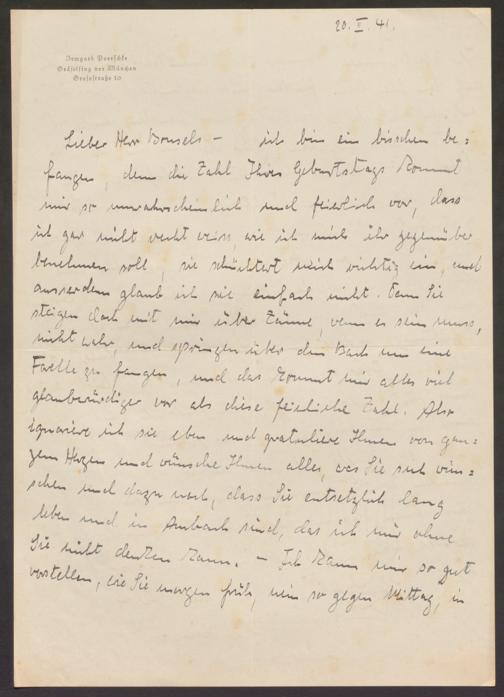 20. II. 41.
Irmgard Poerschke
Gräfelfing vor München
Grosostraße 10
Lieber Herr Bonsels – ich bin ein bisschen be=
fangen, denn die Zahl Ihres Geburtstags kommt
mir so unwahrscheinlich und feierlich vor, dass
ich gar nicht recht weiss, wie ich mich ihr gegenüber
benehmen soll, sie schüchtert mich richtig ein, und
ausserdem glaub ich sie einfach nicht. Denn Sie
steigen doch mit mir über Zäune, wenn es sein muss,
nicht wahr, und springen über den Bach um eine
Forelle zu fangen, und das kommt mir alles viel
glaubwürdiger vor als diese feierliche Zahl. Also
ignoriere ich sie eben und gratuliere Ihnen von gan=
zem Herzen und wünsche Ihnen alles, was Sie sich wün=
schen und dazu noch, dass Sie entsetzlich lang
leben und in Ambach sind, das ich mir ohne
Sie nicht denken kann. – Ich kann mir so gut
vorstellen, wie Sie morgen früh, nein so gegen Mittag, in